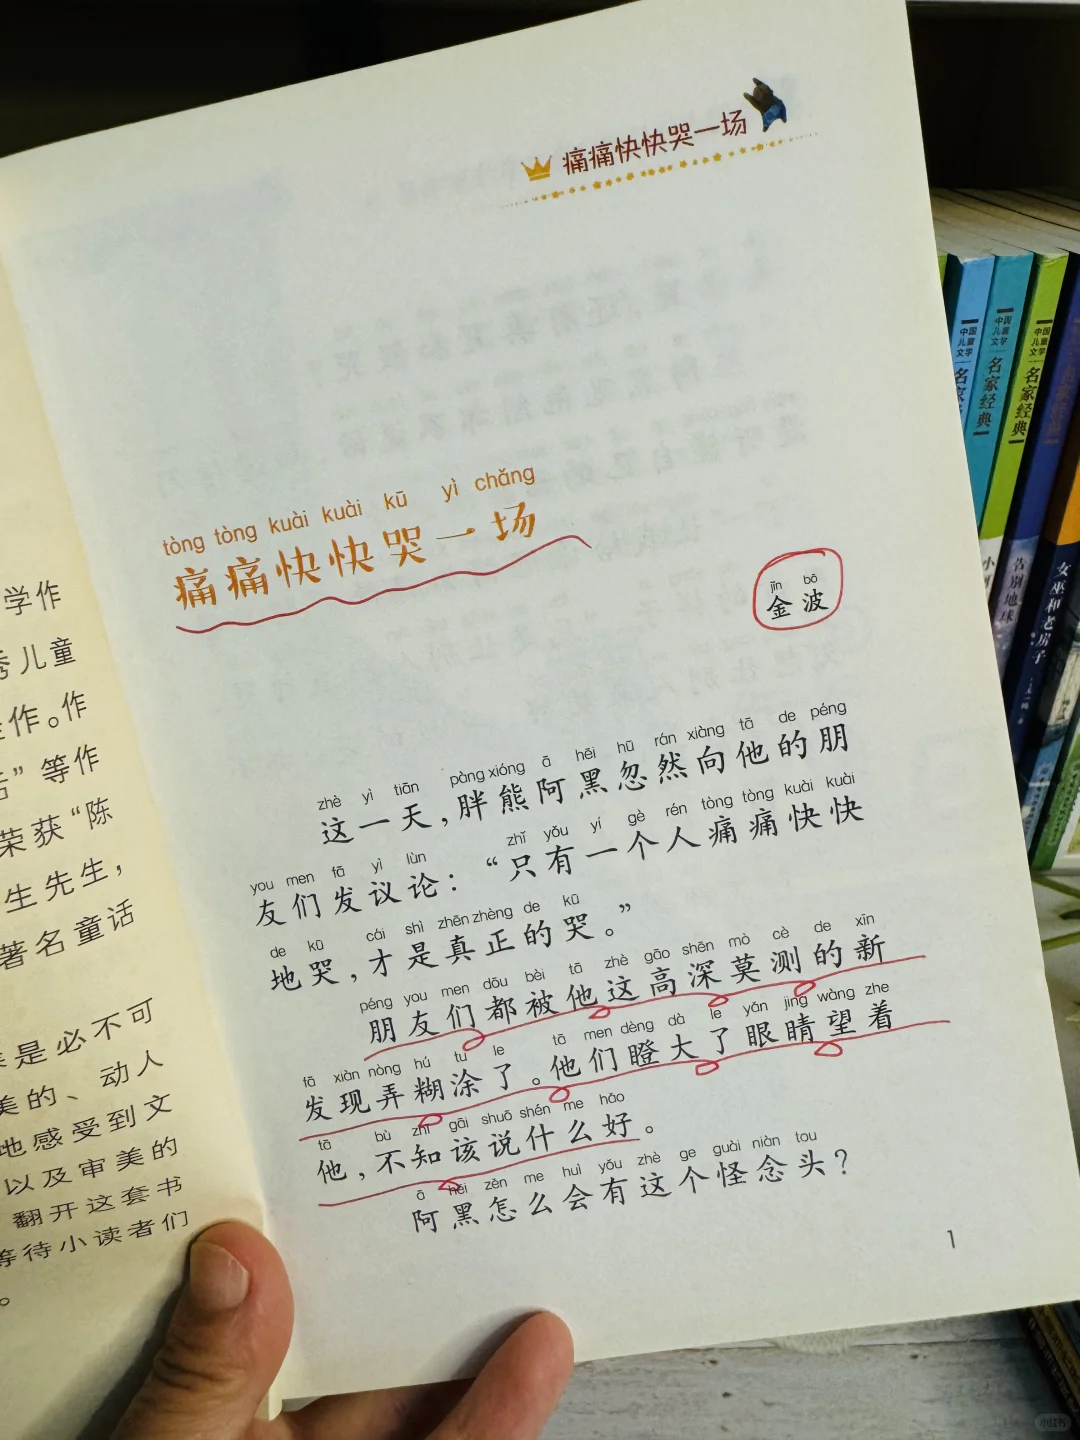 学作
秀儿童
作。作
”等作
荣获“陈
生先生，
著名童话
是必不可
美的、动人
地感受到文
以及审美的
翻开这套书
等待小读者们
。
痛痛快快哭一场
tòng tòng kuài kuài kū yì chǎng
痛痛快快哭一场
jīn bō
金波
zhè yì tiān pàng xióng ā hēi hū rán xiàng tā de péng
这一天，胖熊阿黑忽然向他的朋
you men fā yì lùn zhǐ yǒu yí gè rén tòng tòng kuài kuài
友们发议论：“只有一个人痛痛快快
de kū cái shì zhēn zhèng de kū
地哭，才是真正的哭。”
péng you men dōu bèi tā zhè gāo shēn mò cè de xīn
朋友们都被他这高深莫测的新
fā xiàn nòng hú tu le tā men dèng dà le yǎn jing wàng zhe
发现弄糊涂了。他们瞪大了眼睛望着
tā bù zhī gāi shuō shén me hǎo
他，不知该说什么好。
ā hēi zěn me huì yǒu zhè ge guài niàn tou
阿黑怎么会有这个怪念头？
1
中国儿童文学
名家经典
中国儿童文学
名家经典
中国儿童文学
名家经典
告别地球
女巫和老房子
小红书